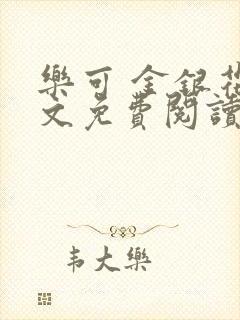 樂可 金銀花
文免費閱讀
韦大樂